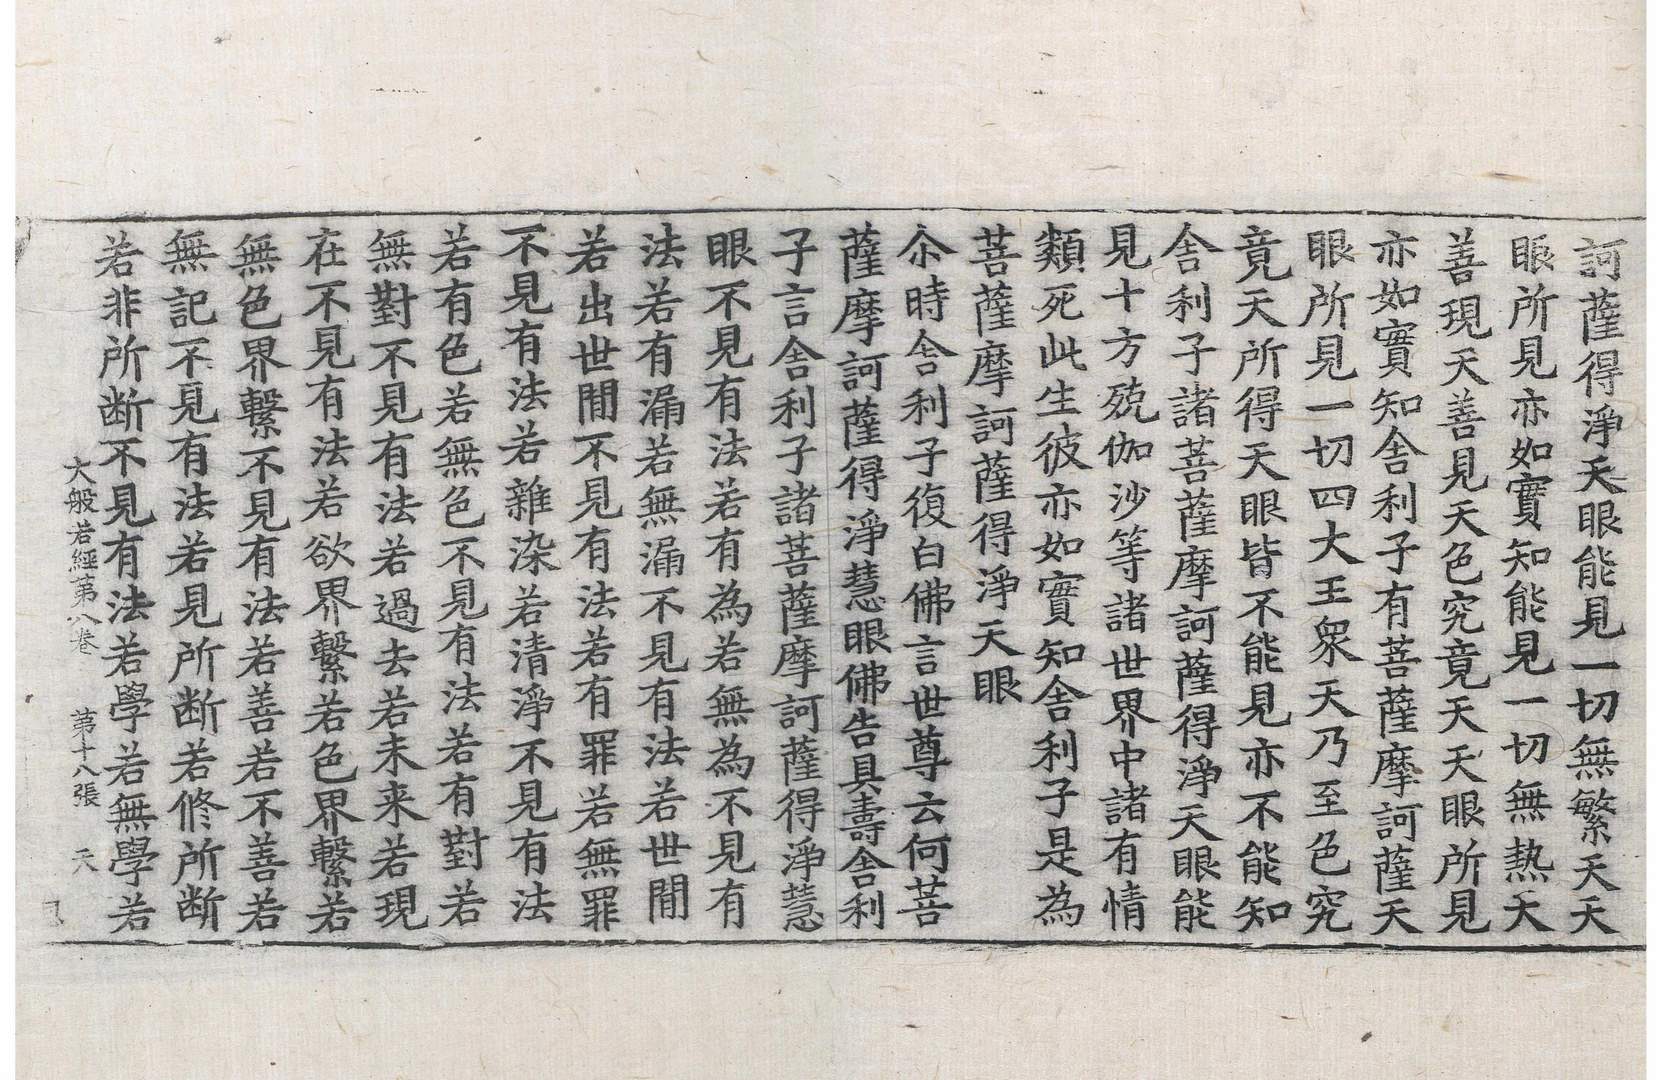 訶薩得淨天眼能見一切無繁天天
眼所見亦如實知能見一切無熱天
善現天善見天色究竟天天眼所見
亦如實知舍利子有菩薩摩訶薩天
眼所見一切四大王衆天乃至色究
竟天所得天眼皆不能見亦不能知
舍利子諸菩薩摩訶薩得淨天眼能
見十方殑伽沙等諸世界中諸有情
類死此生彼亦如實知舍利子是為
菩薩摩訶薩得淨天眼
尒時舍利子復白佛言世尊云何菩
薩摩訶薩得淨慧眼佛告具壽舍利
子言舍利子諸菩薩摩訶薩得淨慧
眼不見有法若有為若無為不見有
法若有漏若無漏不見有法若世閒
若出世閒不見有法若有罪若無罪
不見有法若雜染若清淨不見有法
若有色若無色不見有法若有對若
無對不見有法若過去若未来若現
在不見有法若欲界繫若色界繫若
無色界繫不見有法若善若不善若
無記不見有法若見所断若修所断
若非所断不見有法若學若無學若
大般若經第八卷 第十八張 天